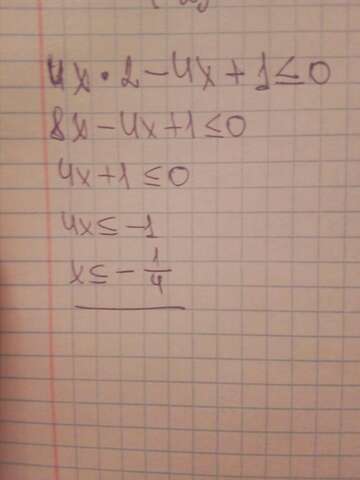 4x · 2 - 4x + 1 ≤ 0
8x - 4x + 1 ≤ 0
4x + 1 ≤ 0
4x ≤ -1
x ≤ - 1/4